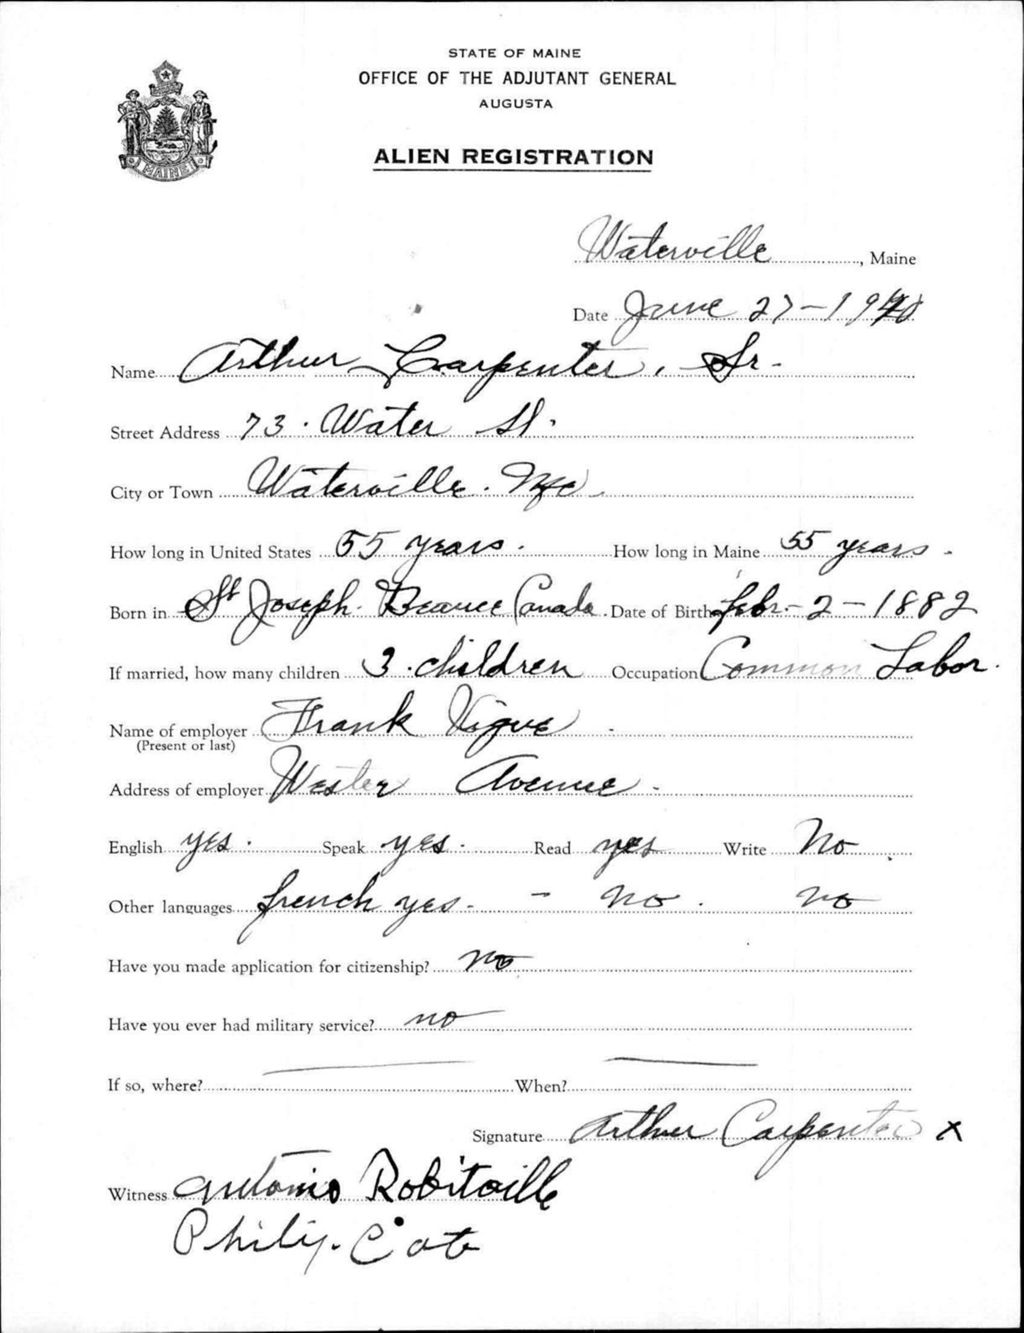 STATE OF MAINE
OFFICE OF THE ADJUTANT GENERAL
AUGUSTA
ALIEN REGISTRATION
MAINE
Waterville, Maine
Date June 27-1940
Name Arthur Carpenter, Sr.
Street Address 73. Water St.
City or Town Waterville. Me.
How long in United States 55 years. How long in Maine 55 years.
Born in St Joseph. Beauce Canada. Date of Birth febr.-2-1882
If married, how many children 3. children Occupation Common Labor.
Name of employer Frank Vigue
(Present or last)
Address of employer Avenue.
English yes. Speak yes. Read yes Write No.
Other languages french yes. - no. no
Have you made application for citizenship? no
Have you ever had military service? no
If so, where? When?
Signature Arthur Carpenter x
Witness Antonio Robitaille
Philip. Cote